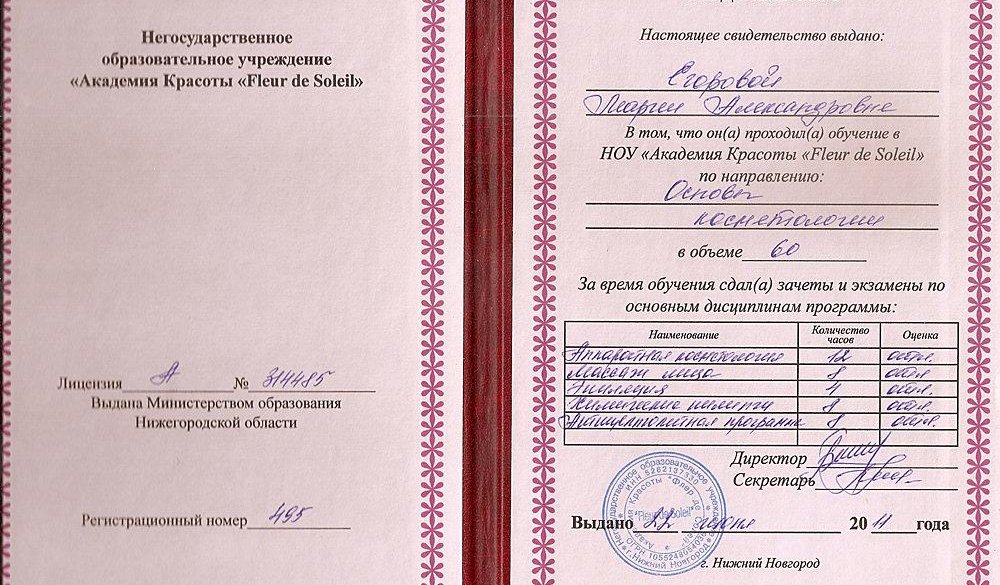 Негосударственное
образовательное учреждение
«Академия Красоты «Fleur de Soleil»
Лицензия А № 314485
Выдана Министерством образования
Нижегородской области
Регистрационный номер 495
Настоящее свидетельство выдано:
Егоровой
Марии Александровне
В том, что он(а) проходил(а) обучение в
НОУ «Академия Красоты «Fleur de Soleil»
по направлению:
Основы
косметологии
в объеме 60
За время обучения сдал(а) зачеты и экзамены по
основным дисциплинам программы:
Наименование Количество часов Оценка
Аппаратная косметология 12 отл.
Массаж лица 8 отл
Эпиляция 4 отл.
Химические пилинги 8 отл.
Антицеллюлитная программа 8 отл.
Директор
Секретарь
Негосударственное образовательное учреждение
ИНН 5262137330
Академия Красоты "Флер де Солей"
"Fleur de Soleil"
г. Нижний Новгород
Выдано 22 июня 20 11 года
г. Нижний Новгород